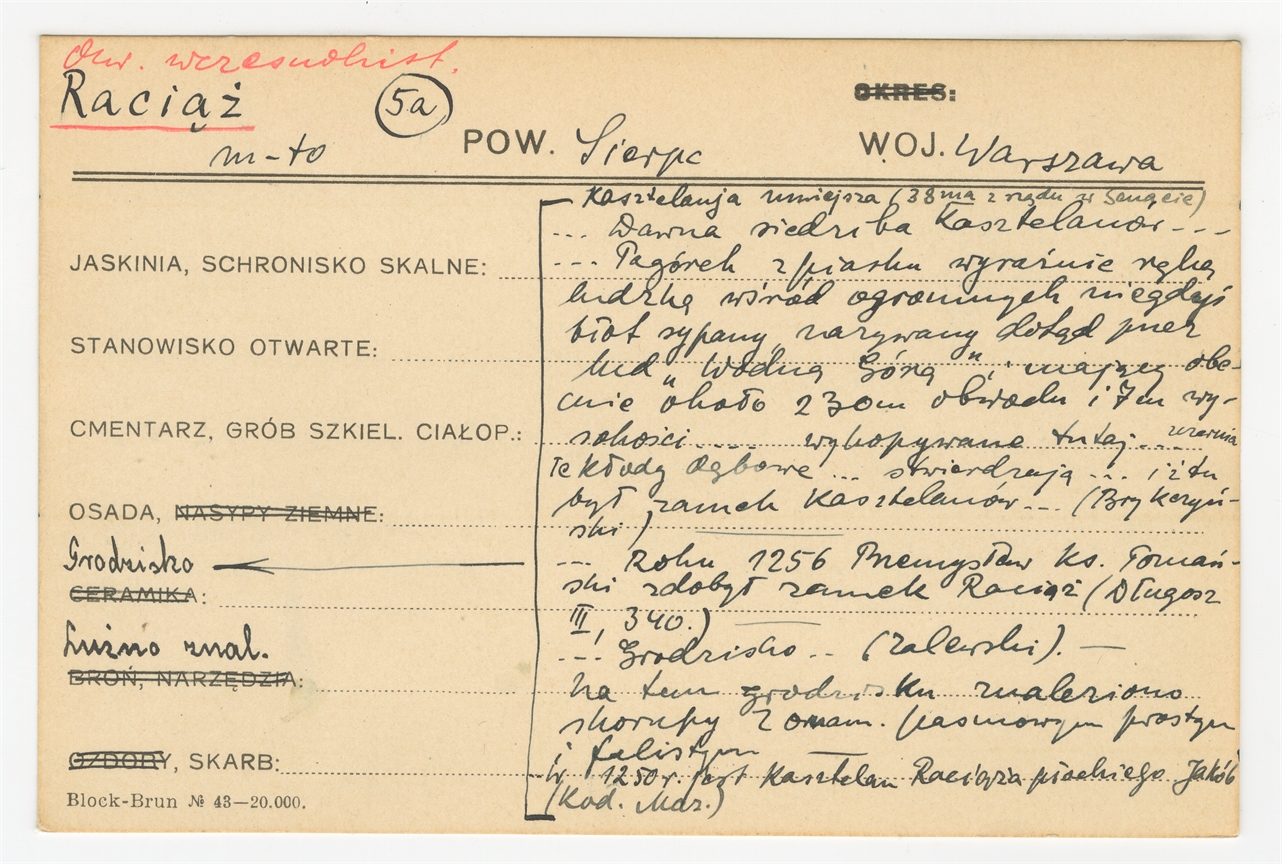 Okr. wczesnohist.
Raciąż
5a
m-to
POW. Sierpc
OKRES:
WOJ. Warszawa
Kasztelanja mniejsza (38ma z rzędu w Senacie)
... Dawna siedziba Kasztelanów ...
JASKINIA, SCHRONISKO SKALNE:
... Pagórek z piasku wyraźnie ręką
ludzką wśród ogromnych niegdyś
błot sypany, nazywany dotąd przez
STANOWISKO OTWARTE:
lud „Wodną Górą”, mający obe-
cnie około 230m obwodu i 7m wy-
CMENTARZ, GRÓB SZKIEL. CIAŁOP.:
sokości .... wykopywane tutaj ...
te kłody dębowe ... stwierdzają ... iż tu
był zamek Kasztelanów ... (Brykczyń-
ski)
OSADA, NASYPY ZIEMNE:
Grodzisko
... Roku 1256 Przemysław ks. Poznań-
ski zdobył zamek Raciąż (Długosz
III, 340.)
CERAMIKA:
Luźno znal.
... Grodzisko .. (Zalewski). —
BROŃ, NARZĘDZIA:
Na tem grodzisku znaleziono
skorupy z ornam. pasmowym prostym
i falistym —
OZDOBY, SKARB:
W 1250 r. jest Kasztelan Raciąża płockiego Jakób
(Kod. Maz.)
Block-Brun № 43—20.000.